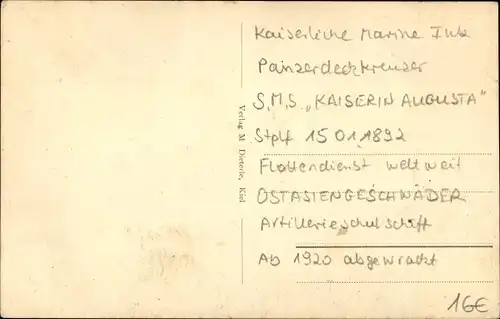 Kaiserliche Marine
Panzerdeckkreuzer
S.M.S. „KAISERIN AUGUSTA"
Stplf 15.01.1892
Flottendienst weltweit
OSTASIENGESCHWADER
Artillerieschulschiff
Ab 1920 abgewrackt
16€
Verlag M. Dieterle, Kiel